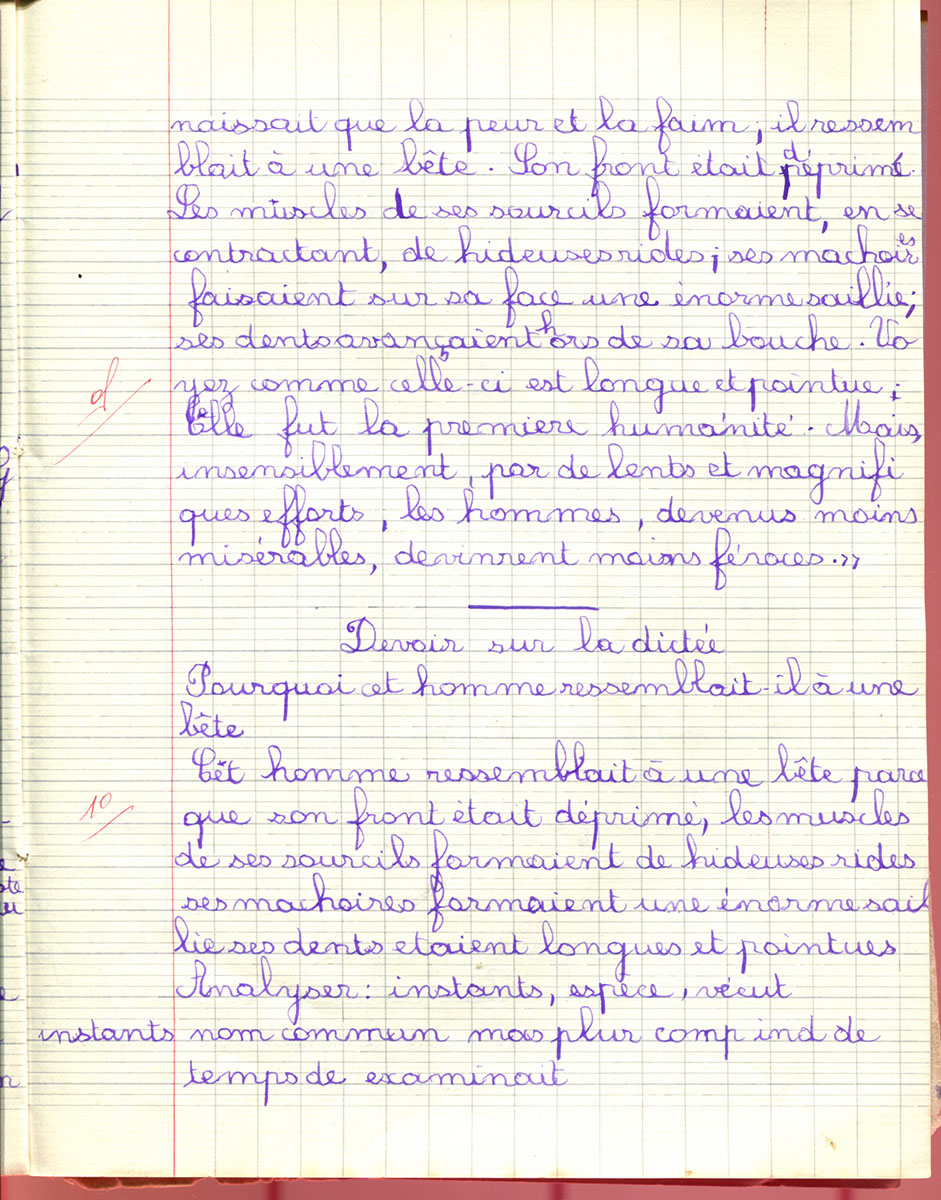 naissait que la peur et la faim ; il ressem
blait à une bête. Son front était déprimé.
Les muscles de ses sourcils formaient, en se
contractant, de hideuses rides ; ses machoires
faisaient sur sa face une énorme saillie ;
ses dents avançaient hors de sa bouche. Vo
yez comme celle-ci est longue et pointue ;
d
Telle fut la premiere humanité. Mais,
insensiblement, par de lents et magnifi
ques efforts, les hommes, devenus moins
misérables, devinrent moins féroces. »
Devoir sur la dictée
Pourquoi cet homme ressemblait-il à une
bête
Cet homme ressemblait à une bête parce
10
que son front était déprimé, les muscles
de ses sourcils formaient de hideuses rides
ses machoires formaient une énorme sail
lie ses dents etaient longues et pointues
Analyser : instants, espèce, vécut
instants nom commun mas plur comp ind de
temps de examinait